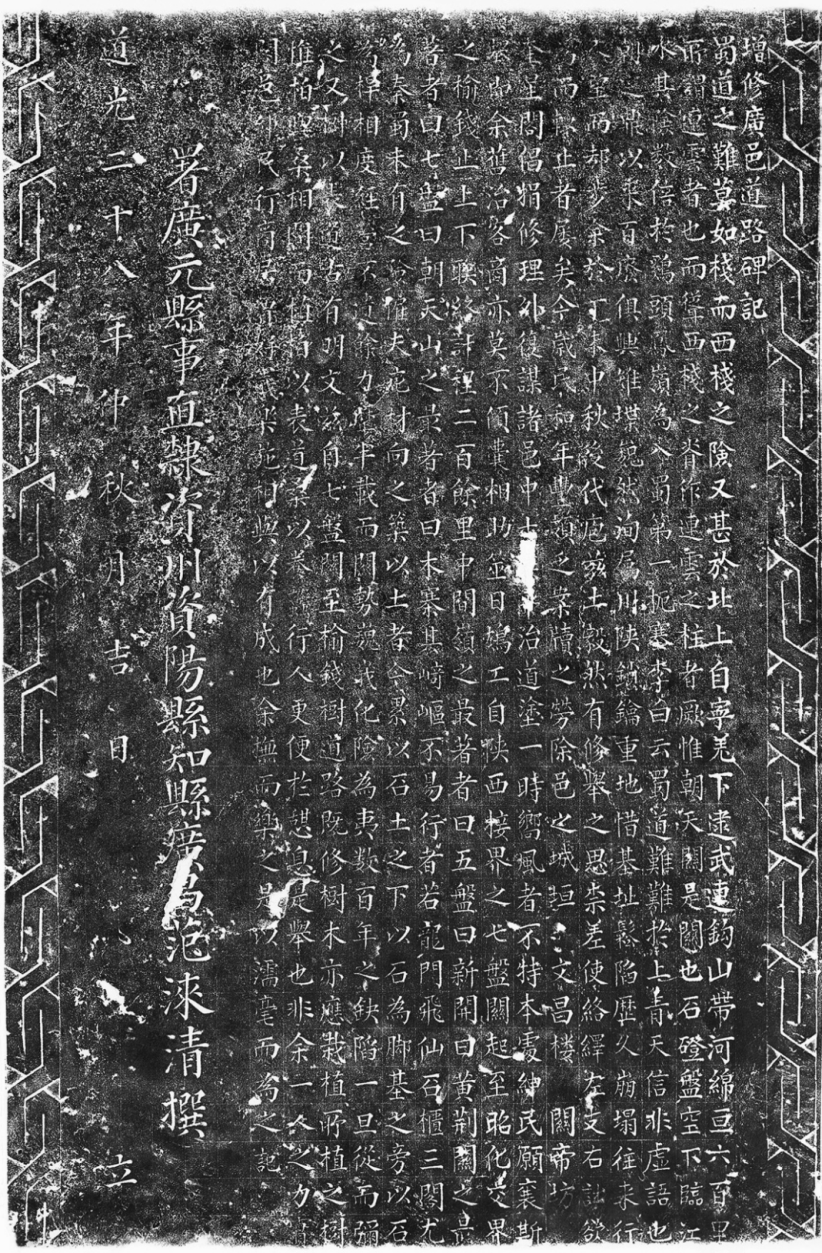 增修廣邑道路碑記
蜀道之難莫如棧而西棧之險又甚於北上自寧羌下逮武連鈎山帶河綿亘六百里
所謂連雲者也而聳西棧之脊作連雲之柱者厥惟朝天關是關也石磴盤空下臨江
水其險數倍於鷄頭鳳嶺為入蜀第一扼塞李白云蜀道難難於上青天信非虛語也
劍之鼎以來百廢俱興雉堞巍然洵屬川陝鎖鑰重地惜基址鬆陷歷久崩塌往來行
人望而却步余於丁未中秋段代庖茲土毅然有修舉之思柰差使絡繹左支右詘欲
為而輒止者屢矣今歲民和年豐頗乏案牘之勞除邑之城垣 文昌樓 關帝坊
奎星閣倡捐修理外復謀諸邑中士 治道塗一時嚮風者不特本處紳民願襄斯
舉即余舊治客商亦莫不傾囊相助並日鳩工自陝西接界之七盤關起至昭化交界
之榆錢止上下聯絡計程二百餘里中間嶺之最著者曰五盤曰新開曰黃荆關之最
著者曰七盤曰朝天山之最著者曰木寨其崎嶇不易行者若龍門飛仙石櫃三閣尤
為秦蜀未有之險僱夫庀材向之築以土者今累以石土之下以石為脚基之旁以石
為桿相度經營不遺餘力歷半載而關勢巍峩化險為夷數百年之缺陷一旦從而彌
之又樹以表道古有明文茲自七盤關至榆錢樹道路既修樹木亦應栽植所植之樹
惟柏與桑相間而植柏以表道桑以養 行人更便於憩息是舉也非余一人之力皆
闔邑紳民行商 好義樂施相與以有成也余撫而樂之是以濡毫而為之記
署廣元縣事直隸資州資陽縣知縣 范淶清撰
道光二十八年仲秋月吉日 立